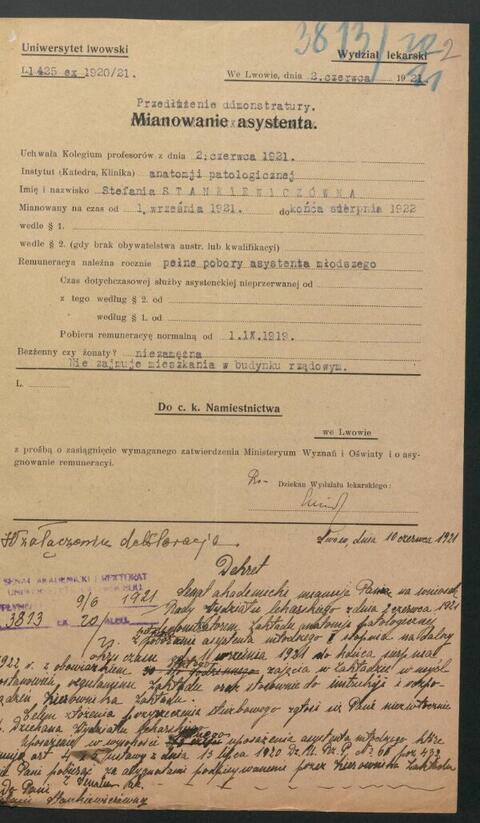 3813/22 2
21
Uniwersytet lwowski
Wydział lekarski
L1425 ex 1920/21.
We Lwowie, dnia 2.czerwca 1921.
Przedłużenie demonstratury.
Mianowanie asystenta.
Uchwała Kolegium profesorów z dnia 2.czerwca 1921.
Instytut (Katedra, Klinika) anatomji patologicznej
Imię i nazwisko Stefania STANKIEWICZÓWNA
Mianowany na czas od 1.września 1921. do końca sierpnia 1922
wedle § 1.
wedle § 2. (gdy brak obywatelstwa austr. lub kwalifikacyi)
Remuneracya należna rocznie pełne pobory asystenta młodszego
Czas dotychczasowej służby asystenckiej nieprzerwanej od
z tego według § 2. od
według § 1. od
Pobiera remuneracyę normalną od 1.IX.1919.
Bezżenny czy żonaty? niezamężna
Nie zajmuje mieszkania w budynku rządowym.
L.
Do c. k. Namiestnictwa
we Lwowie
z prośbą o zasiągnięcie wymaganego zatwierdzenia Ministeryum Wyznań i Oświaty i o asy-
gnowanie remuneracyi.
Dziekan Wydziału lekarskiego:
Lwów, dnia 10 czerwca 1921
Z załączeniem deklaracji.
Dekret
SENAT AKADEMICKI I REKTORAT
9/6 1921
3813 ex 20/
Senat akademicki mianuje Panią na wniosek
Rady Wydziału lekarskiego z dnia 2 czerwca 1921
demonstratorem Zakładu anatomji patologicznej
z poborami asystenta młodszego na dalszy
okres czasu od 1 września 1921 do końca sierpnia
1922 r. z obowiązkiem zajęcia w Zakładzie w myśl
postanowień regulaminu Zakładu oraz stosownie do instrukcji i rozpo-
rządzeń Kierownika Zakładu.
Celem złożenia przyrzeczenia służbowego zgłosi się Pani niezwłocznie
Dziekana Wydziału lekarskiego.
w wysokości uposażenia asystenta młodszego
art. 4 ustawy z dnia 13 lipca 1920 Dz. U. Rz. P. № 65 poz. 433
Pani pobierać za asygnatami podpisywanemi przez Kierownika Zakładu
Do Pani
Stankiewiczówny